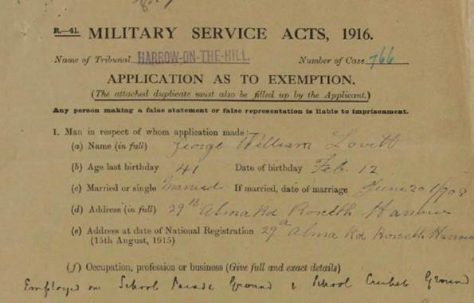 R.—41. MILITARY SERVICE ACTS, 1916.
Name of Tribunal HARROW-ON-THE-HILL Number of Case 766
APPLICATION AS TO EXEMPTION.
(The attached duplicate must also be filled up by the Applicant.)
Any person making a false statement or false representation is liable to imprisonment.
1. Man in respect of whom application made:—
(a) Name (in full) George William Lovett
(b) Age last birthday 41 Date of birthday Feb. 12
(c) Married or single Married If married, date of marriage June 20 1903
(d) Address (in full) 29 Alma Rd Harrow
(e) Address at date of National Registration 29a Alma Rd
(15th August, 1915)
(f) Occupation, profession or business (Give full and exact details)
Employed on School Parade Ground & School Cricket Ground